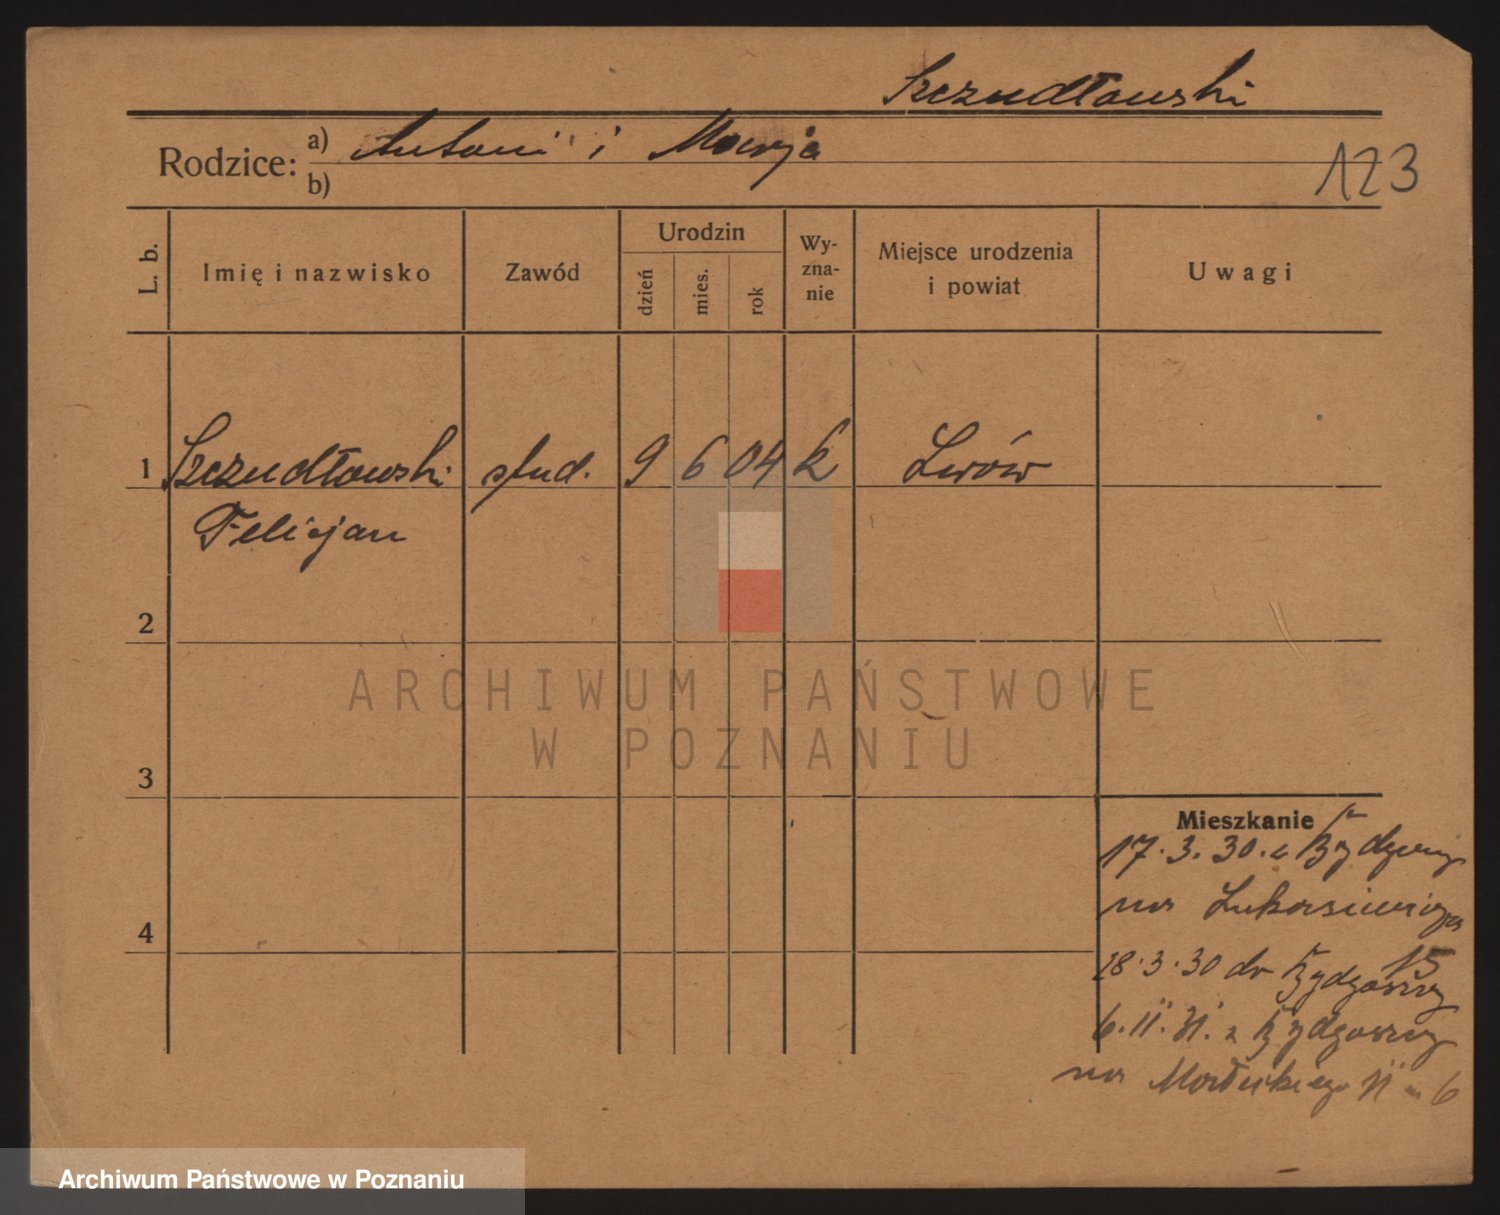 Szczudłowski
Rodzice: a) Antoni i Marja
b)
123
L. b. Imię i nazwisko Zawód Urodzin dzień mies. rok Wy-zna-nie Miejsce urodzenia i powiat Uwagi
1 Szczudłowski stud. 9 6 04 k Lwów
Felicjan
2
3
4
Mieszkanie
17.3.30. z Bydgoszczy
na Łukasiewicza
15
28.3.30 do Bydgoszczy
z Bydgoszczy
na
ARCHIWUM PAŃSTWOWE
W POZNANIU
Archiwum Państwowe w Poznaniu